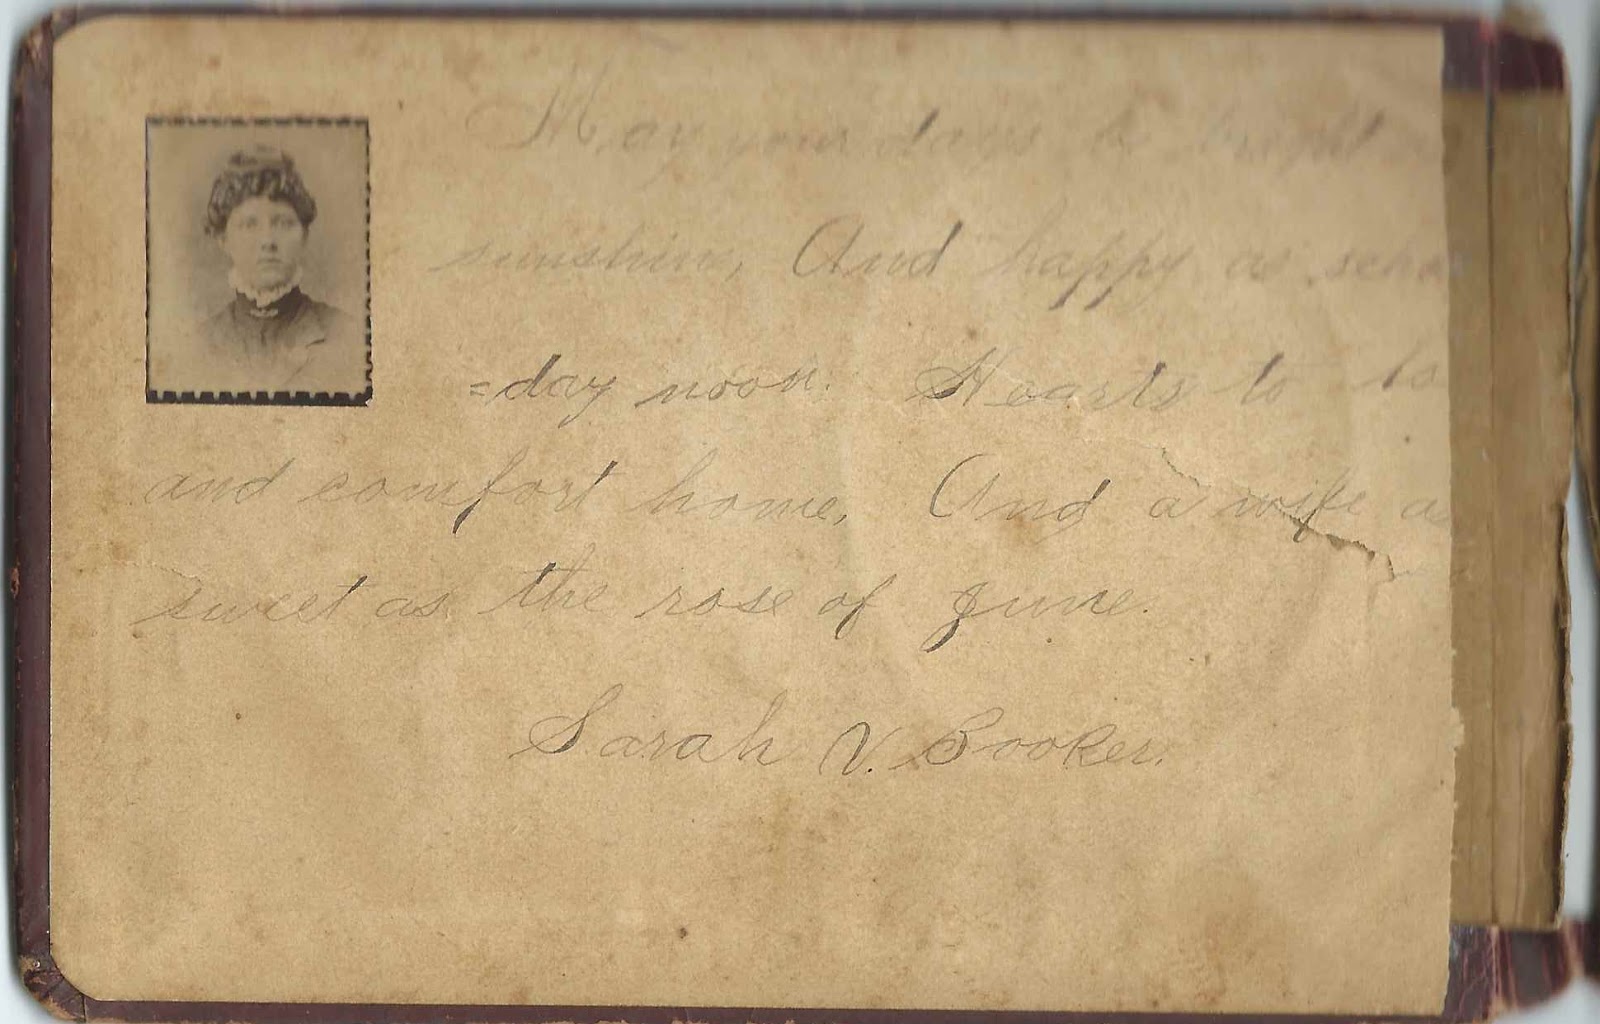 May your days be bright
sunshine, And happy as
=day noon. Hearts to
and comfort home, And a wife
sweet as the rose of June.
Sarah V. Booker.